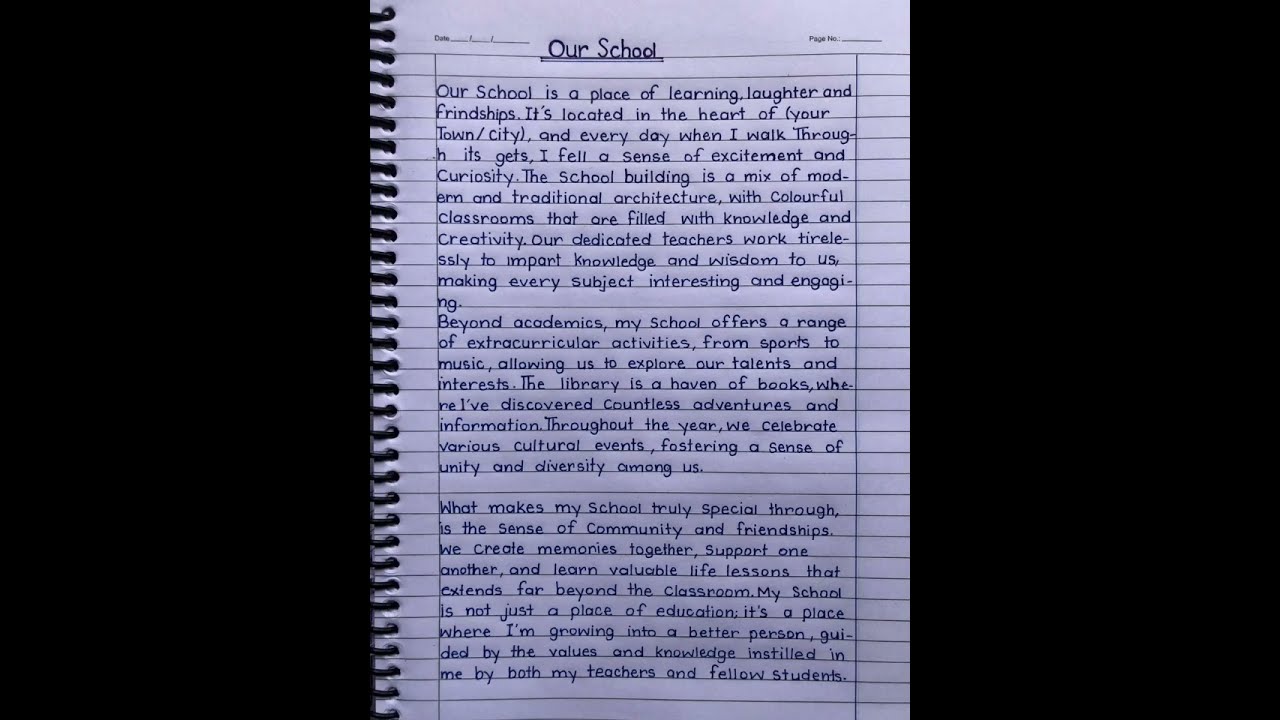 Date ____/____/______
Page No.: ________
Our School
Our School is a place of learning, laughter and
frindships. It's located in the heart of (your
Town/city), and every day when I walk Throug-
h its gets, I fell a sense of excitement and
Curiosity. The School building is a mix of mod-
ern and traditional architecture, with Colourful
Classrooms that are filled with knowledge and
Creativity. Our dedicated teachers work tirele-
ssly to impart knowledge and wisdom to us,
making every subject interesting and engagi-
ng.
Beyond academics, my school offers a range
of extracurricular activities, from sports to
music, allowing us to explore our talents and
interests. The library is a haven of books, whe-
re I've discovered Countless adventures and
information. Throughout the year, we celebrate
various cultural events, fostering a sense of
unity and diversity among us.
What makes my School truly special through,
is the sense of Community and friendships.
We Create memories together, Support one
another, and learn valuable life lessons that
extends far beyond the Classroom. My School
is not just a place of education, it's a place
where I'm growing into a better person, gui-
ded by the values and knowledge instilled in
me by both my teachers and fellow Students.